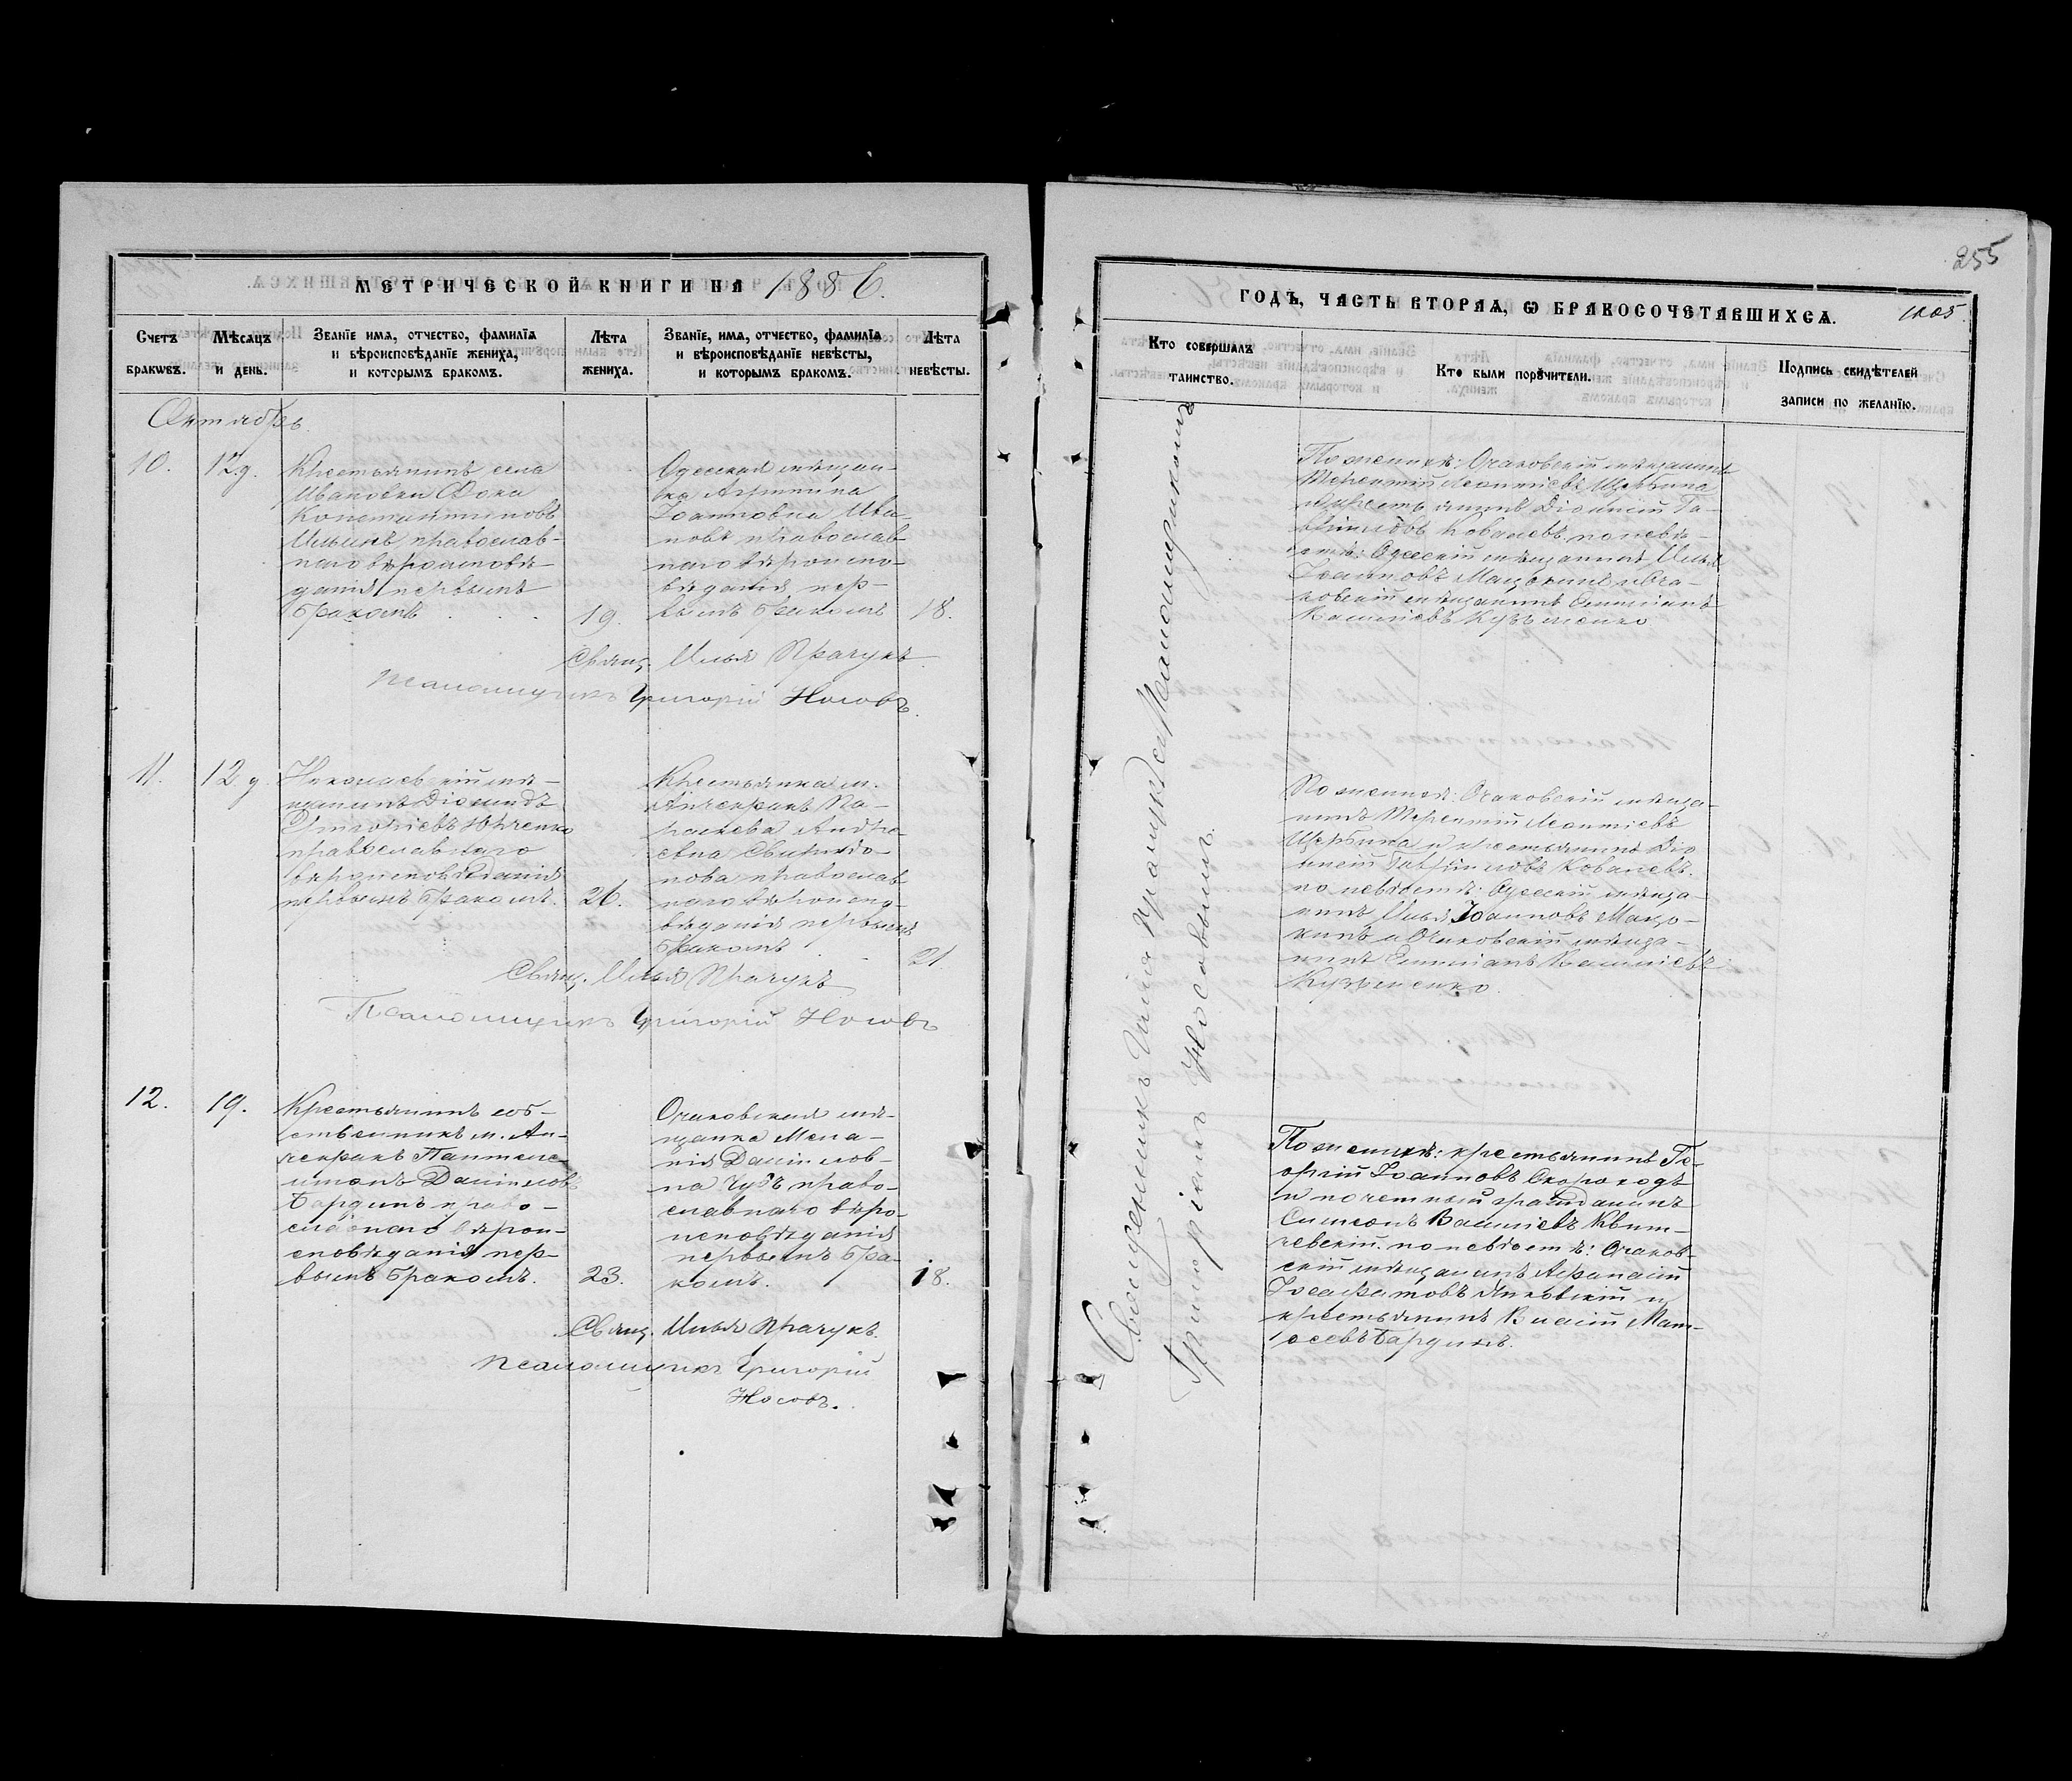 МЕТРИЧЕСКОЙ КНИГИ НА 1886.
Счетъ браковъ.
Мѣсяцъ и день.
Званїе имя, отчество, фамилїя
и вѣроисповѣданїе жениха,
и которымъ бракомъ.
Лѣта
жениха.
Званїе, имя, отчество, фамилїя
и вѣроисповѣданїе невѣсты,
и которымъ бракомъ.
Лѣта
невѣсты.
Октябрь.
10.
12 д.
Крестьянинъ села
Ивановки Фока
Константиновъ
Ильинъ, православ-
наго вѣроисповѣ-
данія первымъ
бракомъ
19.
Одесская мѣщан-
ка Агрипина
Іоанновна Ива-
новъ православ-
наго вѣроиспо-
вѣданія пер-
вымъ бракомъ
18.
Свящ. Илья Прачукъ
Псаломщикъ Григорій Носовъ.
11.
12 д.
Николаевскій мѣ-
щанинъ Діомидъ
Григорьевъ Юрченко
православнаго
вѣроисповѣданія
первымъ бракомъ.
26.
Крестьянка м.
Анчекракъ Па-
раскева Андре-
евна Свиридо-
нова православ
наго вѣроиспо-
вѣданія первымъ
бракомъ
21
Свящ. Илья Прачукъ
Псаломщикъ Григорій Носовъ
12.
19.
Крестьянинъ соб-
ственникъ м. Ан-
чекракъ Пантеле-
имонъ Даніиловъ
Бардинъ право-
славнаго вѣрои-
сповѣданія пер-
вымъ бракомъ.
23.
Очаковская мѣ-
щанка Мела-
нія Даніилов-
на Чубъ право-
славнаго вѣро-
исповѣданія
первымъ бра-
комъ.
18.
Свящ. Илья Прачукъ.
Псаломщикъ Григорій
Носовъ.
255
ГОДЪ, ЧАСТЬ ВТОРАЯ, Ѡ БРАКОСОЧЕТАВШИХСЯ.
Кто совершалъ
таинство.
Кто были порꙋчители.
Подпись свидѣтелей
записи по желанїю.
Священникъ Илія Прачукъ съ Псаломщикомъ
Григоріемъ Носовымъ.
По женихѣ: Очаковскій мѣщанинъ
Терентій Леонтіевъ Щербина
и крестьянинъ Діонисій Га-
вріиловъ Ковалевъ, по невѣ-
стѣ: Одесскій мѣщанинъ Илья
Іоанновъ Мацокинъ и Оча-
ковскій мѣщанинъ Емиліанъ
Василіевъ Кузьменко
По женихѣ: Очаковскій мѣща-
нинъ Терентій Леонтіевъ
Щербина и крестьянинъ Діо
нисій Гавріиловъ Ковалевъ.
по невѣстѣ: Одесскій мѣща-
нинъ Илья Іоанновъ Мацо-
кинъ и Очаковскій мѣща-
нинъ Емиліанъ Василіевъ
Кузьменко.
По женихѣ: крестьянинъ Ге-
оргій Іоанновъ Скороходъ
и почетный гражданинъ
Симеонъ Василіевъ Квит-
чевскій. по невѣстѣ: Очаков-
скій мѣщанинъ Афанасій
Іосафатовъ Яновскій и
крестьянинъ Власій Мат-
ѳеевъ Бардинъ.